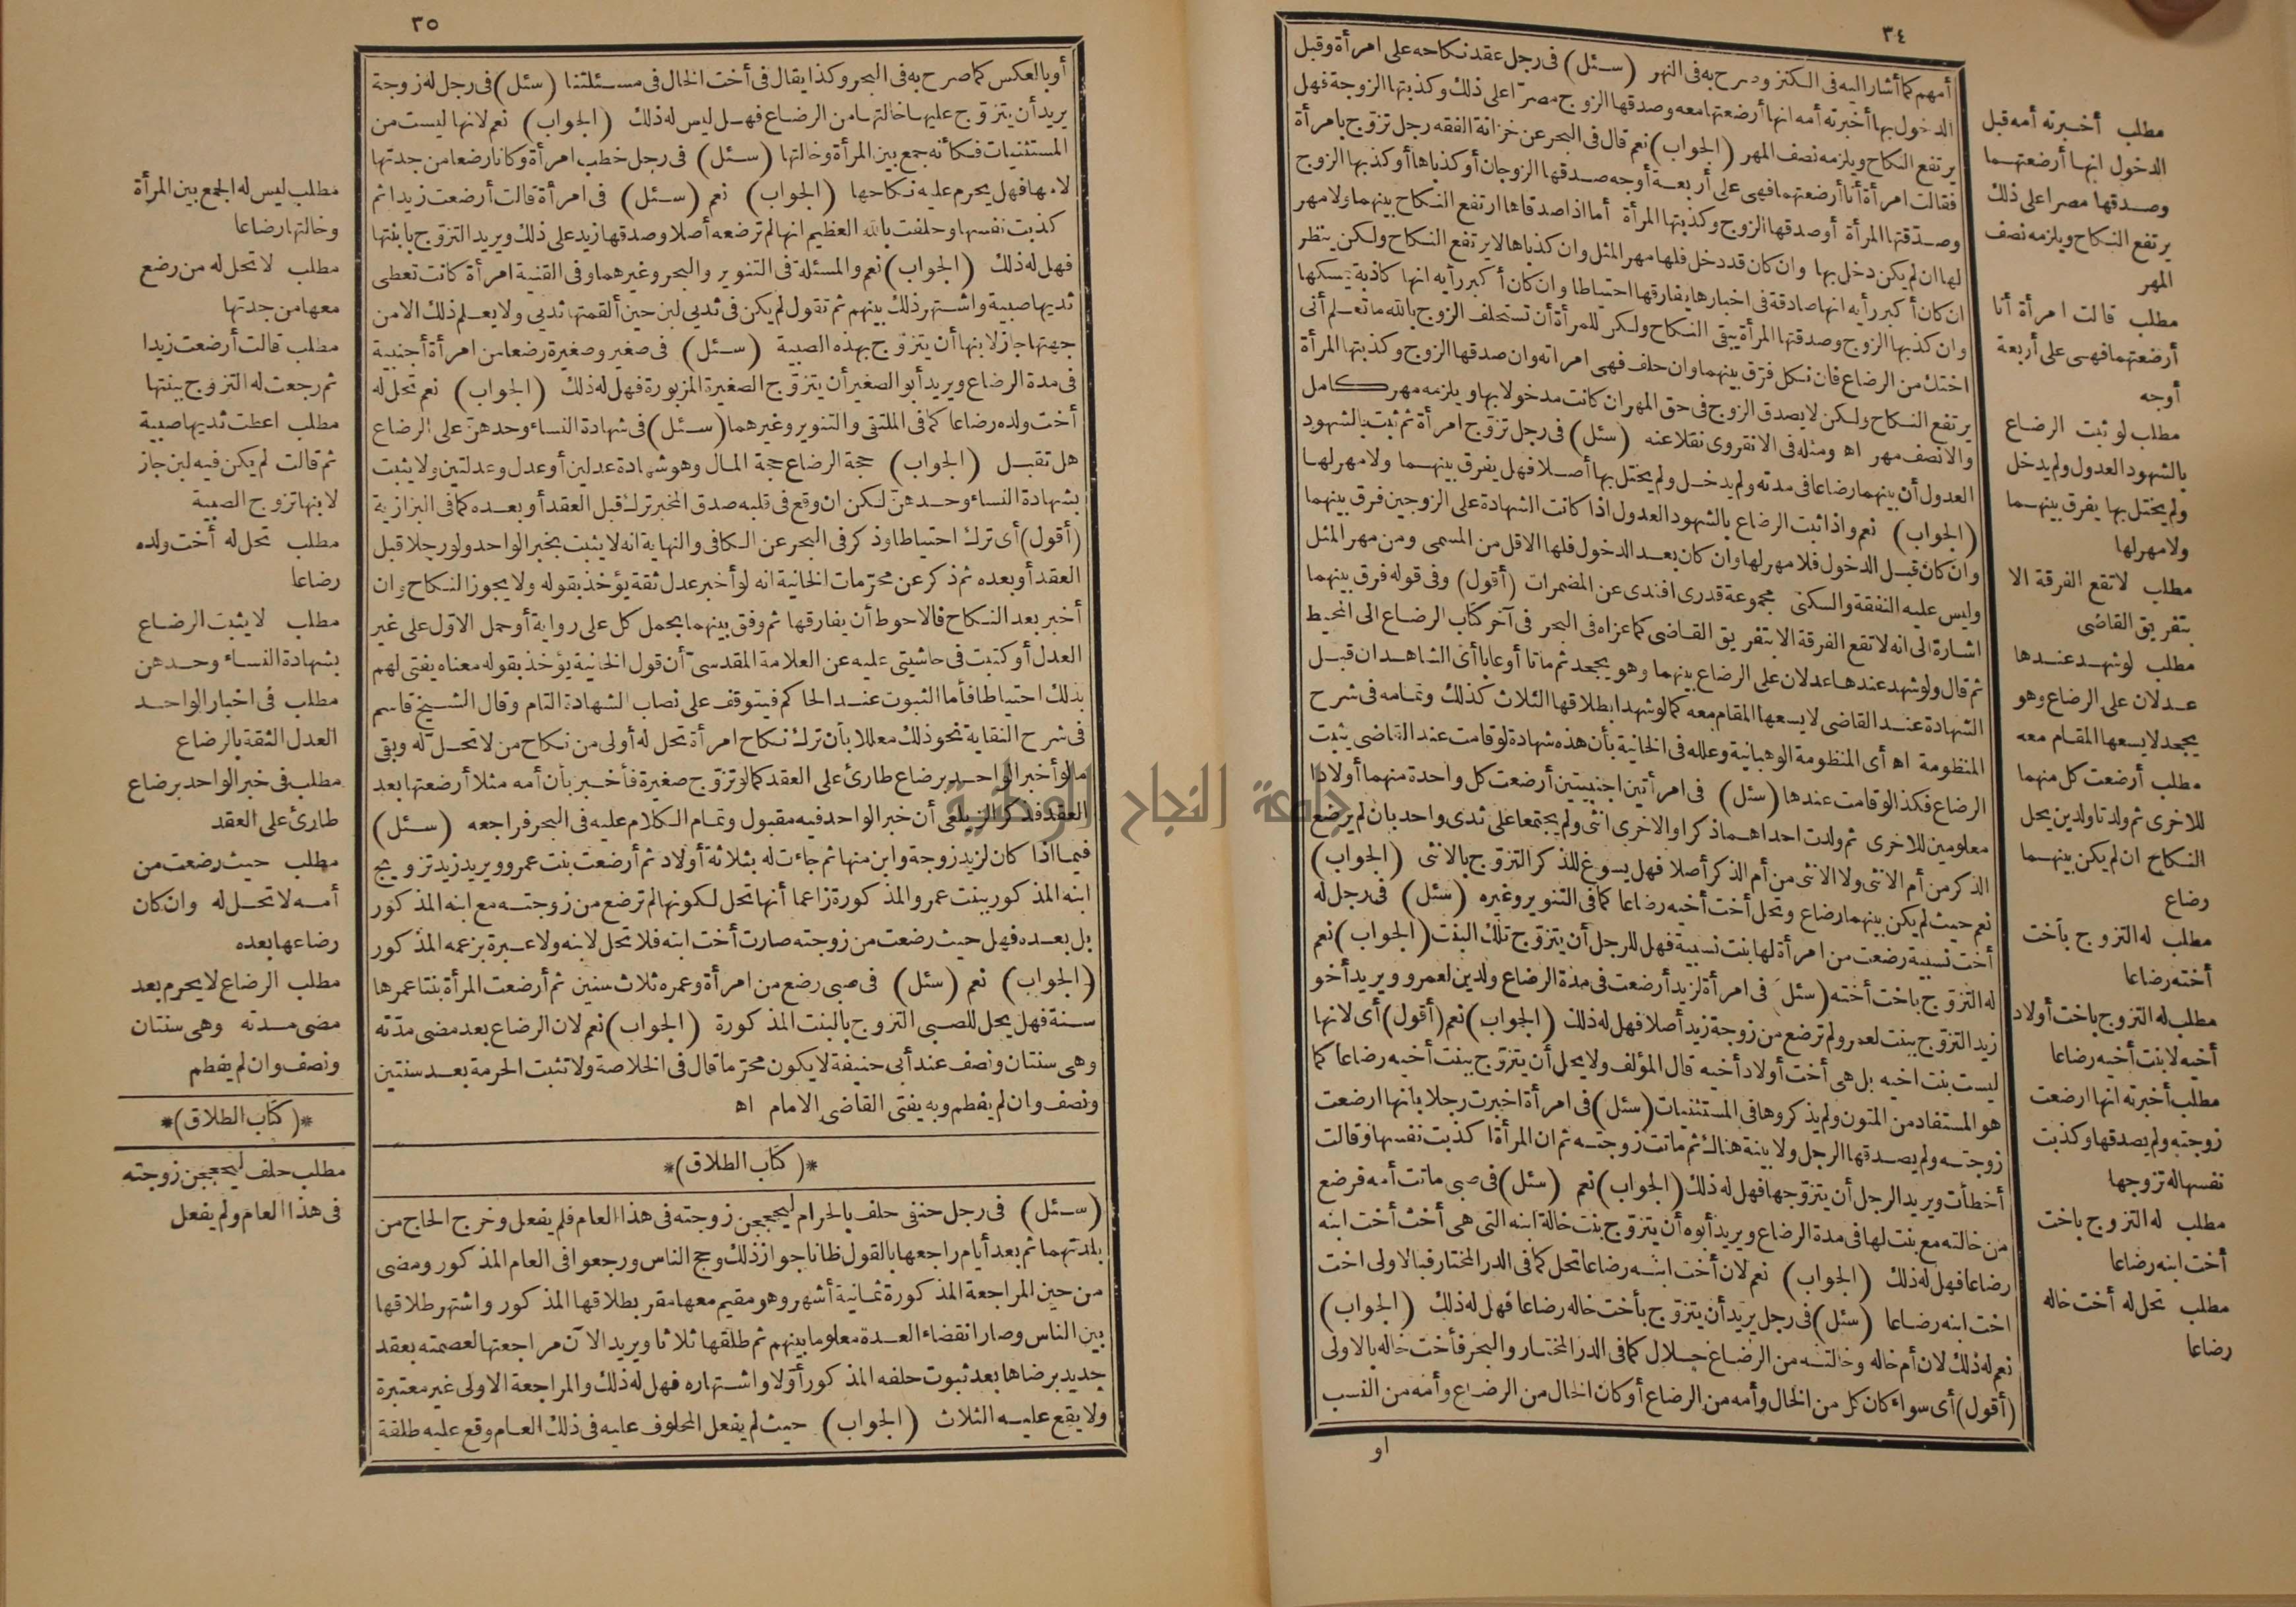 ٣٤
أمهم كما أشار اليه فى الكنز وصرح به فى النهر (سئل) فى رجل عقد نكاحه على امرأة وقبل
الدخول بها أخبرته أمه انها أرضعتها معه وصدقها الزوج مصرا على ذلك وكذبتها الزوجة فهل
يرتفع النكاح ويلزمه نصف المهر (الجواب) نعم قال فى البحر عن خزانة الفقه رجل تزوج بامرأة
فقالت امرأة أنا أرضعتهما فهى على أربعة أوجه صدقها الزوجان أو كذباها أو كذبها الزوج
وصدقتها المرأة أو صدقها الزوج وكذبتها المرأة أما اذا صدقاها ارتفع النكاح بينهما ولا مهر
لها ان لم يكن دخل بها وان كان قد دخل فلها مهر المثل وان كذباها لا يرتفع النكاح ولكن ينظر
ان كان أكبر رأيه انها صادقة فى اخبارها يفارقها احتياطا وان كان أكبر رأيه انها كاذبة يمسكها
وان كذبها الزوج وصدقتها المرأة يبقى النكاح ولكن للمرأة أن تستحلف الزوج بالله ما تعلم أنى
اختك من الرضاع فان نكل فرق بينهما وان حلف فهى امرأته وان صدقها الزوج وكذبتها المرأة
يرتفع النكاح ولكن لا يصدق الزوج فى حق المهر ان كانت مدخولا بها ويلزمه مهر كامل
والا نصف مهر اه ومثله فى الانقروى نقلا عنه (سئل) فى رجل تزوج امرأة ثم ثبت بالشهود
العدول أن بينهما رضاعا فى مدته ولم يدخل ولم يختل بها أصلا فهل يفرق بينهما ولا مهر لها
(الجواب) نعم واذا ثبت الرضاع بالشهود العدول اذا كانت الشهادة على الزوجين فرق بينهما
وان كان قبل الدخول فلا مهر لها وان كان بعد الدخول فلها الاقل من المسمى ومن مهر المثل
وليس عليه النفقة والسكنى مجموعة قدرى افندى عن المضمرات (أقول) وفى قوله فرق بينهما
اشارة الى انه لا تقع الفرقة الا بتفريق القاضى كما عزاه فى البحر فى آخر كتاب الرضاع الى المحيط
ثم قال ولو شهد عندها عدلان على الرضاع بينهما وهو يجحد ثم ماتا أو غابا أى الشاهدان قبل
الشهادة عند القاضى لا يسعها المقام معه كما لو شهدا بطلاقها الثلاث كذلك وتمامه فى شرح
المنظومة اه أى المنظومة الوهبانية وعلله فى الخانية بأن هذه شهادة لو قامت عند القاضى يثبت
الرضاع فكذا لو قامت عندها (سئل) فى امرأتين اجنبيتين أرضعت كل واحدة منهما أولادا
معلومين للاخرى ثم ولدت احداهما ذكرا والاخرى انثى ولم يجتمعا على ثدى واحد بان لم يرضع
الذكر من أم الانثى ولا الانثى من أم الذكر أصلا فهل يسوغ للذكر التزوج بالانثى (الجواب)
نعم حيث لم يكن بينهما رضاع وتحل أخت أخيه رضاعا كما فى التنوير وغيره (سئل) فى رجل له
أخت نسبية رضعت من امرأة لها بنت نسبية فهل للرجل أن يتزوج تلك البنت (الجواب) نعم
له التزوج باخت أخته (سئل) فى امرأة لزيد أرضعت فى مدة الرضاع ولدين لعمرو ويريد أخو
زيد التزوج ببنت لعمرو ولم ترضع من زوجة زيد أصلا فهل له ذلك (الجواب) نعم (أقول) أى لانها
ليست بنت اخيه بل هى أخت أولاد أخيه قال المؤلف ولا يحل أن يتزوج ببنت أخيه رضاعا كما
هو المستفاد من المتون ولم يذكروها فى المستثنيات (سئل) فى امرأة اخبرت رجلا بانها ارضعت
زوجته ولم يصدقها الرجل ولا بينة هناك ثم ماتت زوجته ثم ان المرأة اكذبت نفسها وقالت
أخطأت ويريد الرجل أن يتزوجها فهل له ذلك (الجواب) نعم (سئل) فى صبى ماتت أمه فرضع
من خالته مع بنت لها فى مدة الرضاع ويريد أبوه أن يتزوج بنت خالة ابنه التى هى أخت أخت ابنه
رضاعا فهل له ذلك (الجواب) نعم لان أخت ابنه رضاعا تحل كما فى الدر المختار فبالاولى اخت
اخت ابنه رضاعا (سئل) فى رجل يريد أن يتزوج بأخت خاله رضاعا فهل له ذلك (الجواب)
نعم له ذلك لان أم خاله وخالته من الرضاع حلال كما فى الدر المختار والبحر فأخت خاله بالاولى
(أقول) أى سواء كان كل من الخال وأمه من الرضاع أو كان الخال من الرضاع وأمه من النسب
او
مطلب أخبرته أمه قبل
الدخول انها أرضعتهما
وصدقها مصرا على ذلك
يرتفع النكاح ويلزمه نصف
المهر
مطلب قالت امرأة أنا
أرضعتهما فهى على أربعة
أوجه
مطلب لو ثبت الرضاع
بالشهود العدول ولم يدخل
ولم يختل بها يفرق بينهما
ولا مهر لها
مطلب لا تقع الفرقة الا
بتفريق القاضى
مطلب لو شهد عندها
عدلان على الرضاع وهو
يجحد لا يسعها المقام معه
مطلب أرضعت كل منهما
للاخرى ثم ولدتا ولدين يحل
النكاح ان لم يكن بينهما
رضاع
مطلب له التزوج بأخت
أخته رضاعا
مطلب له التزوج باخت أولاد
أخيه لا بنت أخيه رضاعا
مطلب أخبرته انها ارضعت
زوجته ولم يصدقها وكذبت
نفسها له تزوجها
مطلب له التزوج باخت
أخت ابنه رضاعا
مطلب تحل له أخت خاله
رضاعا
٣٥
أو بالعكس كما صرح به فى البحر وكذا يقال فى أخت الخال فى مسئلتنا (سئل) فى رجل له زوجة
يريد أن يتزوج عليها خالتها من الرضاع فهل ليس له ذلك (الجواب) نعم لانها ليست من
المستثنيات فكأنه جمع بين المرأة وخالتها (سئل) فى رجل خطب امرأة وكانا رضعا من جدتها
لامها فهل يحرم عليه نكاحها (الجواب) نعم (سئل) فى امرأة قالت أرضعت زيدا ثم
كذبت نفسها وحلفت بالله العظيم انها لم ترضعه أصلا وصدقها زيد على ذلك ويريد التزوج بابنتها
فهل له ذلك (الجواب) نعم والمسئلة فى التنوير والبحر وغيرهما وفى القنية امرأة كانت تعطى
ثديها صبية واشتهر ذلك بينهم ثم تقول لم يكن فى ثديى لبن حين ألقمتها ثديى ولا يعلم ذلك الا من
جهتها جاز لابنها أن يتزوج بهذه الصبية (سئل) فى صغير وصغيرة رضعا من امرأة أجنبية
فى مدة الرضاع ويريد أبو الصغير أن يتزوج الصغيرة المزبورة فهل له ذلك (الجواب) نعم تحل له
أخت ولده رضاعا كما فى الملتقى والتنوير وغيرهما (سئل) فى شهادة النساء وحدهن على الرضاع
هل تقبل (الجواب) حجة الرضاع حجة المال وهو شهادة عدلين أو عدل وعدلتين ولا يثبت
بشهادة النساء وحدهن لكن ان وقع فى قلبه صدق المخبر ترك قبل العقد أو بعده كما فى البزازية
(أقول) أى ترك احتياطا وذكر فى البحر عن الكافى والنهاية انه لا يثبت بخبر الواحد ولو رجلا قبل
العقد أو بعده ثم ذكر عن محرمات الخانية انه لو أخبر عدل ثقة يؤخذ بقوله ولا يجوز النكاح وان
أخبر بعد النكاح فالاحوط أن يفارقها ثم وفق بينهما بحمل كل على رواية أو حمل الاول على غير
العدل أو كتبت فى حاشيتى عليه عن العلامة المقدسى أن قول الخانية يؤخذ بقوله معناه يفتى لهم
بذلك احتياطا فأما الثبوت عند الحاكم فيتوقف على نصاب الشهادة التام وقال الشيخ قاسم
فى شرح النقاية نحو ذلك معللا بأن ترك نكاح امرأة تحل له أولى من نكاح من لا تحل له وبقى
ما لو أخبر الواحد برضاع طارئ على العقد كما لو تزوج صغيرة فأخبر بأن أمه مثلا أرضعتها بعد
العقد فذكر الزيلعى أن خبر الواحد فيه مقبول وتمام الكلام عليه فى البحر فراجعه (سئل)
فيما اذا كان لزيد زوجة وابن منها ثم جاءت له بثلاثة أولاد ثم أرضعت بنت عمرو ويريد زيد تزويج
ابنه المذكور ببنت عمرو المذكورة زاعما أنها تحل لكونها لم ترضع من زوجته مع ابنه المذكور
بل بعده فهل حيث رضعت من زوجته صارت أخت ابنه فلا تحل لابنه ولا عبرة بزعمه المذكور
(الجواب) نعم (سئل) فى صبى رضع من امرأة وعمره ثلاث سنين ثم أرضعت المرأة بنتا عمرها
سنة فهل يحل للصبى التزوج بالبنت المذكورة (الجواب) نعم لان الرضاع بعد مضى مدته
وهى سنتان ونصف عند أبى حنيفة لا يكون محرما قال فى الخلاصة ولا تثبت الحرمة بعد سنتين
ونصف وان لم يفطم وبه يفتى القاضى الامام اه
*(كتاب الطلاق)*
(سئل) فى رجل حنفى حلف بالحرام ليحججن زوجته فى هذا العام فلم يفعل وخرج الحاج من
بلدتهما ثم بعد أيام راجعها بالقول ظانا جواز ذلك وحج الناس ورجعوا فى العام المذكور ومضى
من حين المراجعة المذكورة ثمانية أشهر وهو مقيم معها مقر بطلاقها المذكور واشتهر طلاقها
بين الناس وصار انقضاء العدة معلوما بينهم ثم طلقها ثلاثا ويريد الآن مراجعتها لعصمته بعقد
جديد برضاها بعد ثبوت حلفه المذكور أولا واشتهاره فهل له ذلك والمراجعة الاولى غير معتبرة
ولا يقع عليه الثلاث (الجواب) حيث لم يفعل المحلوف عليه فى ذلك العام وقع عليه طلقة
مطلب ليس له الجمع بين المرأة
وخالتها رضاعا
مطلب لا تحل له من رضع
معها من جدتها
مطلب قالت أرضعت زيدا
ثم رجعت له التزوج ببنتها
مطلب اعطت ثديها صبية
ثم قالت لم يكن فيه لبن جاز
لابنها تزوج الصبية
مطلب تحل له أخت ولده
رضاعا
مطلب لا يثبت الرضاع
بشهادة النساء وحدهن
مطلب فى اخبار الواحد
العدل الثقة بالرضاع
مطلب فى خبر الواحد برضاع
طارئ على العقد
مطلب حيث رضعت من
أمه لا تحل له وان كان
رضاعها بعده
مطلب الرضاع لا يحرم بعد
مضى مدته وهى سنتان
ونصف وان لم يفطم
*(كتاب الطلاق)*
مطلب حلف ليحججن زوجته
فى هذا العام ولم يفعل
جامعة النجاح الوطنية